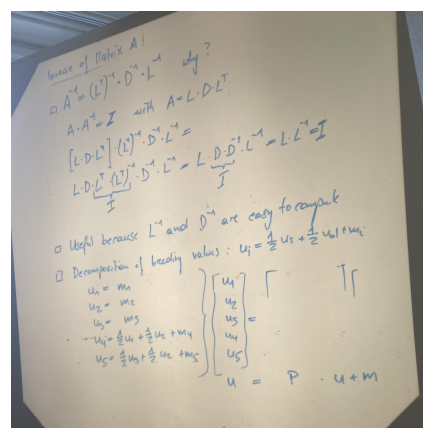 Inverse of Matrix A!
□ A⁻¹ = (Lᵀ)⁻¹ · D⁻¹ · L⁻¹ why?
A · A⁻¹ = I with A = L · D · Lᵀ
[L · D · Lᵀ] · (Lᵀ)⁻¹ · D⁻¹ · L⁻¹ =
L · D · Lᵀ · (Lᵀ)⁻¹ · D⁻¹ · L⁻¹ = L · D · D⁻¹ · L⁻¹ = L · L⁻¹ = I
I I
□ Useful because L⁻¹ and D⁻¹ are easy to compute
□ Decomposition of breeding values: uᵢ = ½ uₛ + ½ u_d + mᵢ
u₁ = m₁
u₂ = m₂
u₃ = m₃
u₄ = ½ u₁ + ½ u₂ + m₄
u₅ = ½ u₃ + ½ u₂ + m₅
[u₁
u₂
u₃
u₄
u₅] =
u = P · u + m